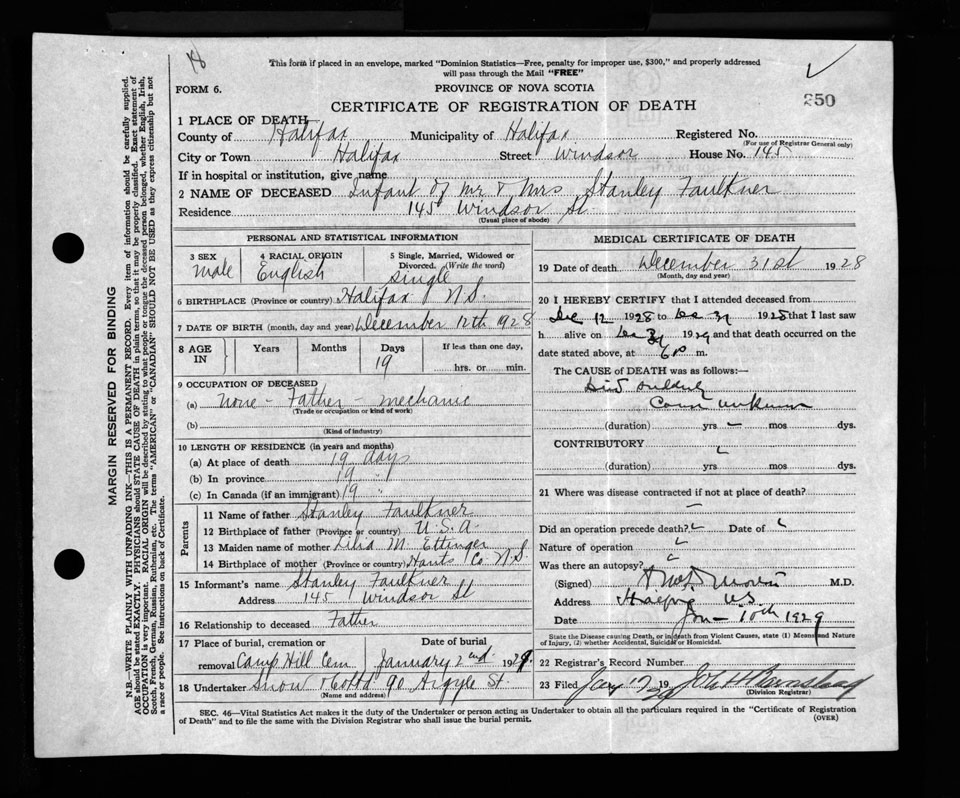 This form if placed in an envelope, marked "Dominion Statistics—Free, penalty for improper use, $300," and properly addressed
will pass through the Mail "FREE"
FORM 6.
PROVINCE OF NOVA SCOTIA
250
CERTIFICATE OF REGISTRATION OF DEATH
1 PLACE OF DEATH
County of Halifax Municipality of Halifax Registered No.
(For use of Registrar General only)
City or Town Halifax Street Windsor House No. 145
If in hospital or institution, give name
2 NAME OF DECEASED Infant of Mr & Mrs Stanley Faulkner
Residence 145 Windsor St.
(Usual place of abode)
PERSONAL AND STATISTICAL INFORMATION
3 SEX Male
4 RACIAL ORIGIN English
5 Single, Married, Widowed or
Divorced. (Write the word)
Single
6 BIRTHPLACE (Province or country) Halifax N.S.
7 DATE OF BIRTH (month, day and year) December 12th 1928
8 AGE IN
Years Months Days If less than one day,
19 hrs. or min.
9 OCCUPATION OF DECEASED
(a) None - Father - Mechanic
(Trade or occupation or kind of work)
(b)
(Kind of industry)
10 LENGTH OF RESIDENCE (in years and months)
(a) At place of death 19 days
(b) In province 19 "
(c) In Canada (if an immigrant) 19 "
Parents
11 Name of father Stanley Faulkner
12 Birthplace of father (Province or country) U.S.A.
13 Maiden name of mother M. Ettinger
14 Birthplace of mother (Province or country) Hants Co N.S.
15 Informant's name Stanley Faulkner
Address 145 Windsor St
16 Relationship to deceased Father
17 Place of burial, cremation or Date of burial
removal Camp Hill Cem January 2nd 1929.
18 Undertaker Snow & Co Ltd 90 Argyle St.
(Name and address)
MEDICAL CERTIFICATE OF DEATH
19 Date of death December 31st 1928
(Month, day and year)
20 I HEREBY CERTIFY that I attended deceased from
Dec 12 1928 to Dec 31 1928 that I last saw
h alive on Dec 1929 and that death occurred on the
date stated above, at m.
The CAUSE of DEATH was as follows:—
Died suddenly
Cause unknown
(duration) yrs mos dys.
CONTRIBUTORY
(duration) yrs mos dys.
21 Where was disease contracted if not at place of death?
Did an operation precede death? Date of
Nature of operation
Was there an autopsy?
(Signed) M.D.
Address Halifax NS
Date Jan - 10th 1929
State the Disease causing Death, or in death from Violent Causes, state (1) Means and Nature
of Injury, (2) whether Accidental, Suicidal or Homicidal.
22 Registrar's Record Number
23 Filed Jany 19
(Division Registrar)
SEC. 46—Vital Statistics Act makes it the duty of the Undertaker or person acting as Undertaker to obtain all the particulars required in the "Certificate of Registration
of Death" and to file the same with the Division Registrar who shall issue the burial permit.
(OVER)
MARGIN RESERVED FOR BINDING
N.B.—WRITE PLAINLY WITH UNFADING INK—THIS IS A PERMANENT RECORD. Every item of information should be carefully supplied.
AGE should be stated EXACTLY. PHYSICIANS should STATE CAUSE OF DEATH in plain terms, so that it may be properly classified. Exact statement of
OCCUPATION is very important. RACIAL ORIGIN will be described by stating to what people or tongue the deceased person belonged, whether English, Irish,
Scotch, French, German, Russian, Ruthenian, etc. The terms "AMERICAN" or "CANADIAN" SHOULD NOT BE USED as they express citizenship but not
a race or people. See instructions on back of Certificate.